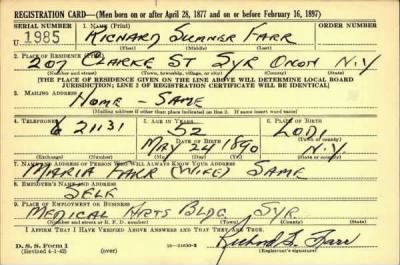 REGISTRATION CARD—(Men born on or after April 28, 1877 and on or before February 16, 1897)
SERIAL NUMBER 1. NAME (Print) ORDER NUMBER
U 1985 RICHARD SUMNER FARR
(First) (Middle) (Last)
2. PLACE OF RESIDENCE (Print)
207 CLARKE ST SYR ONON N.Y
(Number and street) (Town, township, village, or city) (County) (State)
[THE PLACE OF RESIDENCE GIVEN ON THE LINE ABOVE WILL DETERMINE LOCAL BOARD
JURISDICTION; LINE 2 OF REGISTRATION CERTIFICATE WILL BE IDENTICAL]
3. MAILING ADDRESS
HOME - SAME
(Mailing address if other than place indicated on line 2. If same insert word same)
4. TELEPHONE 5. AGE IN YEARS 6. PLACE OF BIRTH
6 21131 52 LODI
DATE OF BIRTH (Town or county)
MAY 24 1890 N.Y.
(Exchange) (Number) (Mo.) (Day) (Yr.) (State or country)
7. NAME AND ADDRESS OF PERSON WHO WILL ALWAYS KNOW YOUR ADDRESS
MARIA FARR (WIFE) SAME
8. EMPLOYER'S NAME AND ADDRESS
SELF
9. PLACE OF EMPLOYMENT OR BUSINESS
MEDICAL ARTS BLDG SYR
(Number and street or R. F. D. number) (Town) (County) (State)
I AFFIRM THAT I HAVE VERIFIED ABOVE ANSWERS AND THAT THEY ARE TRUE.
D. S. S. Form 1
(Revised 4-1-42) (over) Richard S. Farr
(Registrant's signature)